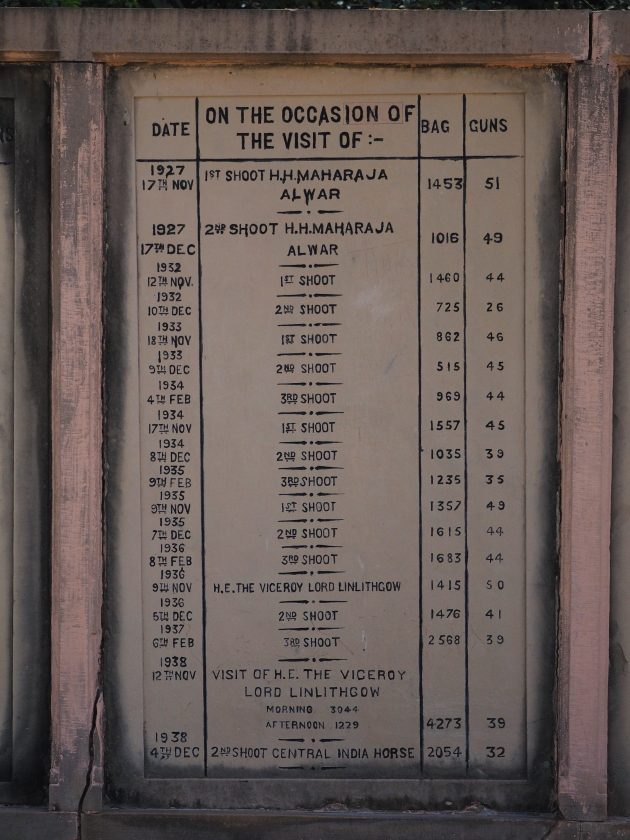 DATE ON THE OCCASION OF THE VISIT OF :- BAG GUNS
1927
17TH NOV 1ST SHOOT H.H. MAHARAJA ALWAR 1453 51
1927
17TH DEC 2ND SHOOT H.H. MAHARAJA ALWAR 1016 49
1932
12TH NOV. 1ST SHOOT 1460 44
1932
10TH DEC 2ND SHOOT 725 26
1933
18TH NOV 1ST SHOOT 862 46
1933
9TH DEC 2ND SHOOT 515 45
1934
4TH FEB 3RD SHOOT 969 44
1934
17TH NOV 1ST SHOOT 1557 45
1934
8TH DEC 2ND SHOOT 1035 39
1935
9TH FEB 3RD SHOOT 1235 35
1935
9TH NOV 1ST SHOOT 1357 49
1935
7TH DEC 2ND SHOOT 1615 44
1936
8TH FEB 3RD SHOOT 1683 44
1936
9TH NOV H.E. THE VICEROY LORD LINLITHGOW 1415 50
1936
5TH DEC 2ND SHOOT 1476 41
1937
6TH FEB 3RD SHOOT 2568 39
1938
12TH NOV VISIT OF H.E. THE VICEROY
LORD LINLITHGOW
MORNING 3044
AFTERNOON 1229 4273 39
1938
4TH DEC 2ND SHOOT CENTRAL INDIA HORSE 2054 32